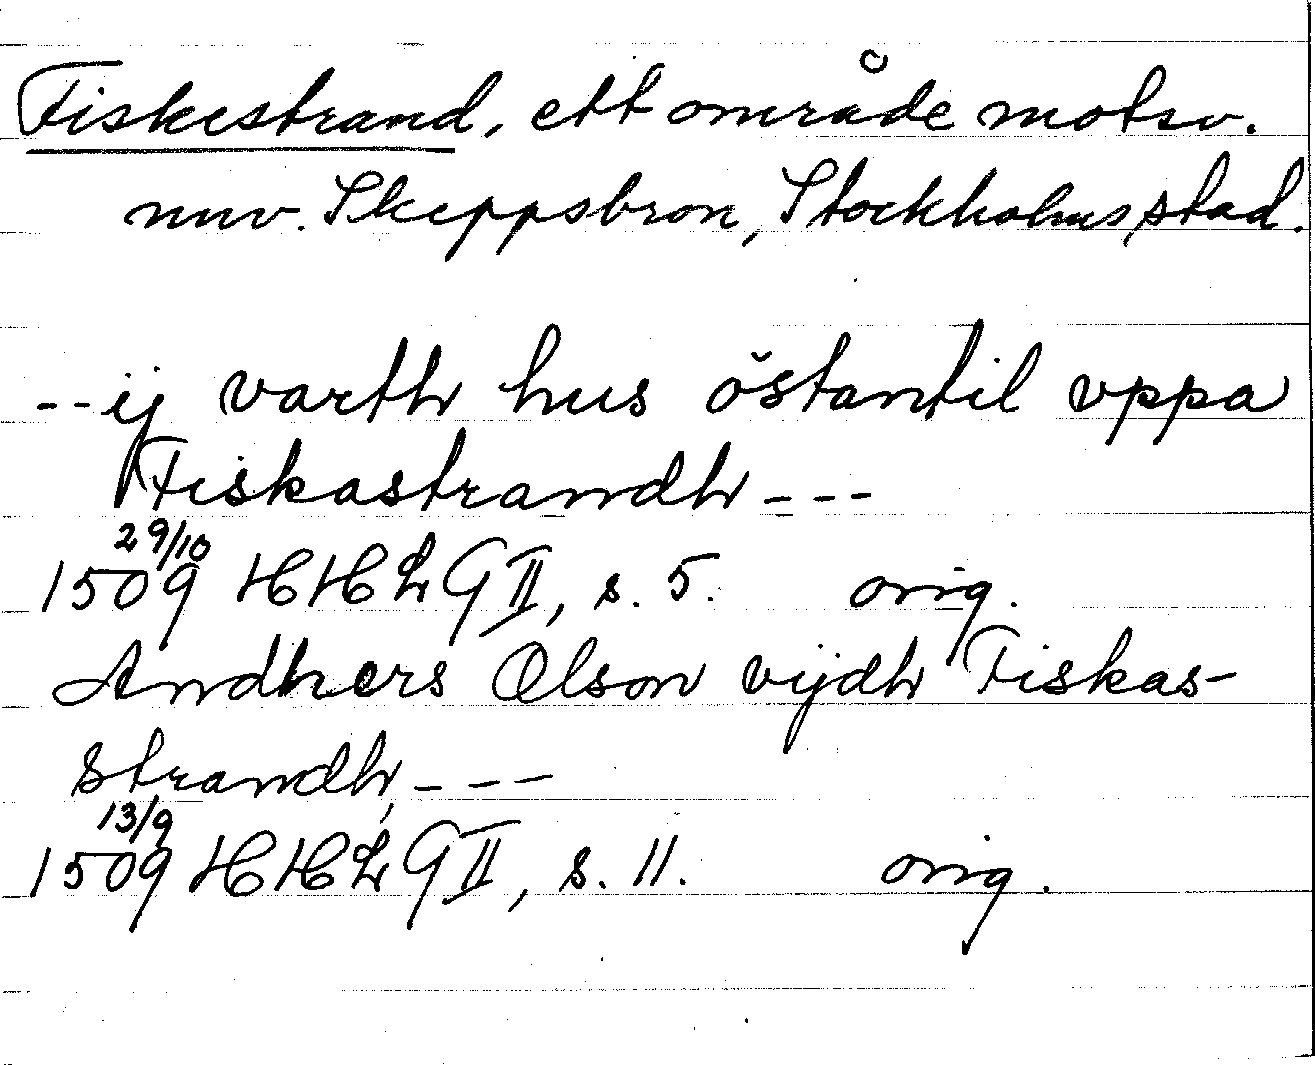 Fiskestrand, ett område motsv.
nuv. Skeppsbron, Stockholms stad.
--ij varth hus östantil vppa
Fiskastrandh ---
29/10
1509 HHLG II, s. 5. orig.
Andhers Olson vijdh Fiskas-
strandh, ---
13/9
1509 HHLG II, s. 11. orig.